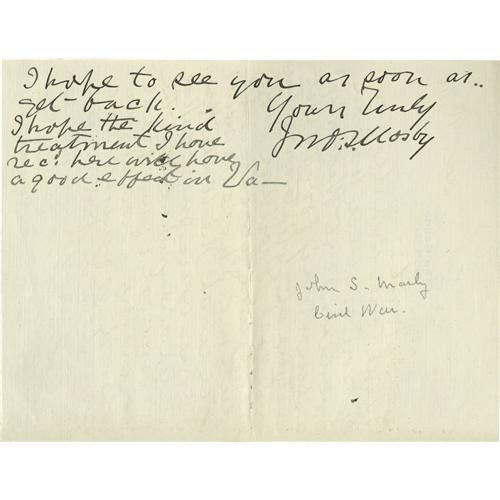 I hope to see you as soon as..
get back.
Yours Truly
Jno. S. Mosby
I hope the kind
treatment I have
rec. here will have
a good effect in Va—
John S. Mosby
Civil War.